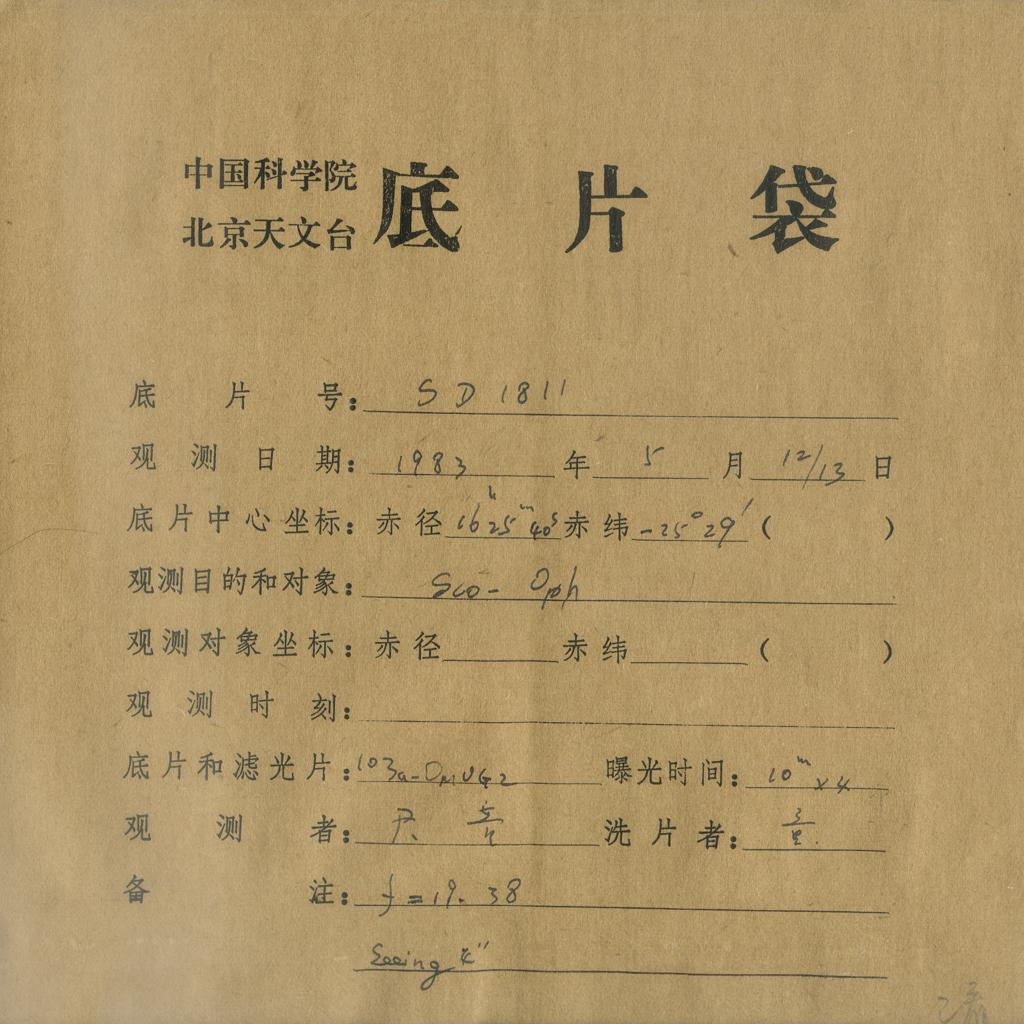 中国科学院
北京天文台
底片袋
底片号: SD 1811
观测日期: 1983 年 5 月 12/13 日
底片中心坐标: 赤径 16h 25m 40s 赤纬 -25° 29′ ( )
观测目的和对象: Sco- Oph
观测对象坐标: 赤径 赤纬 ( )
观测时刻:
底片和滤光片: 103a-O UG2 曝光时间: 10m x4
观测者: 洗片者:
备注: f=19.38
Seeing 4″